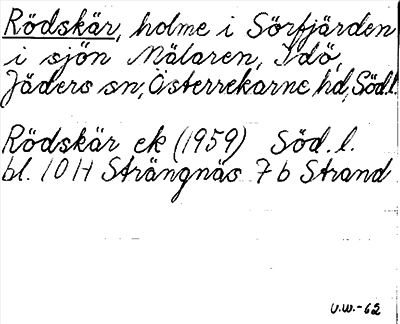 Rödskär, holme i Sörfjärden
i sjön Mälaren, Idö,
Jäders sn, Österrekarne hd, Södl.
Rödskär ek (1959) Söd. l.
bl. 10 H Strängnäs 7 b Strand
U.W.-62